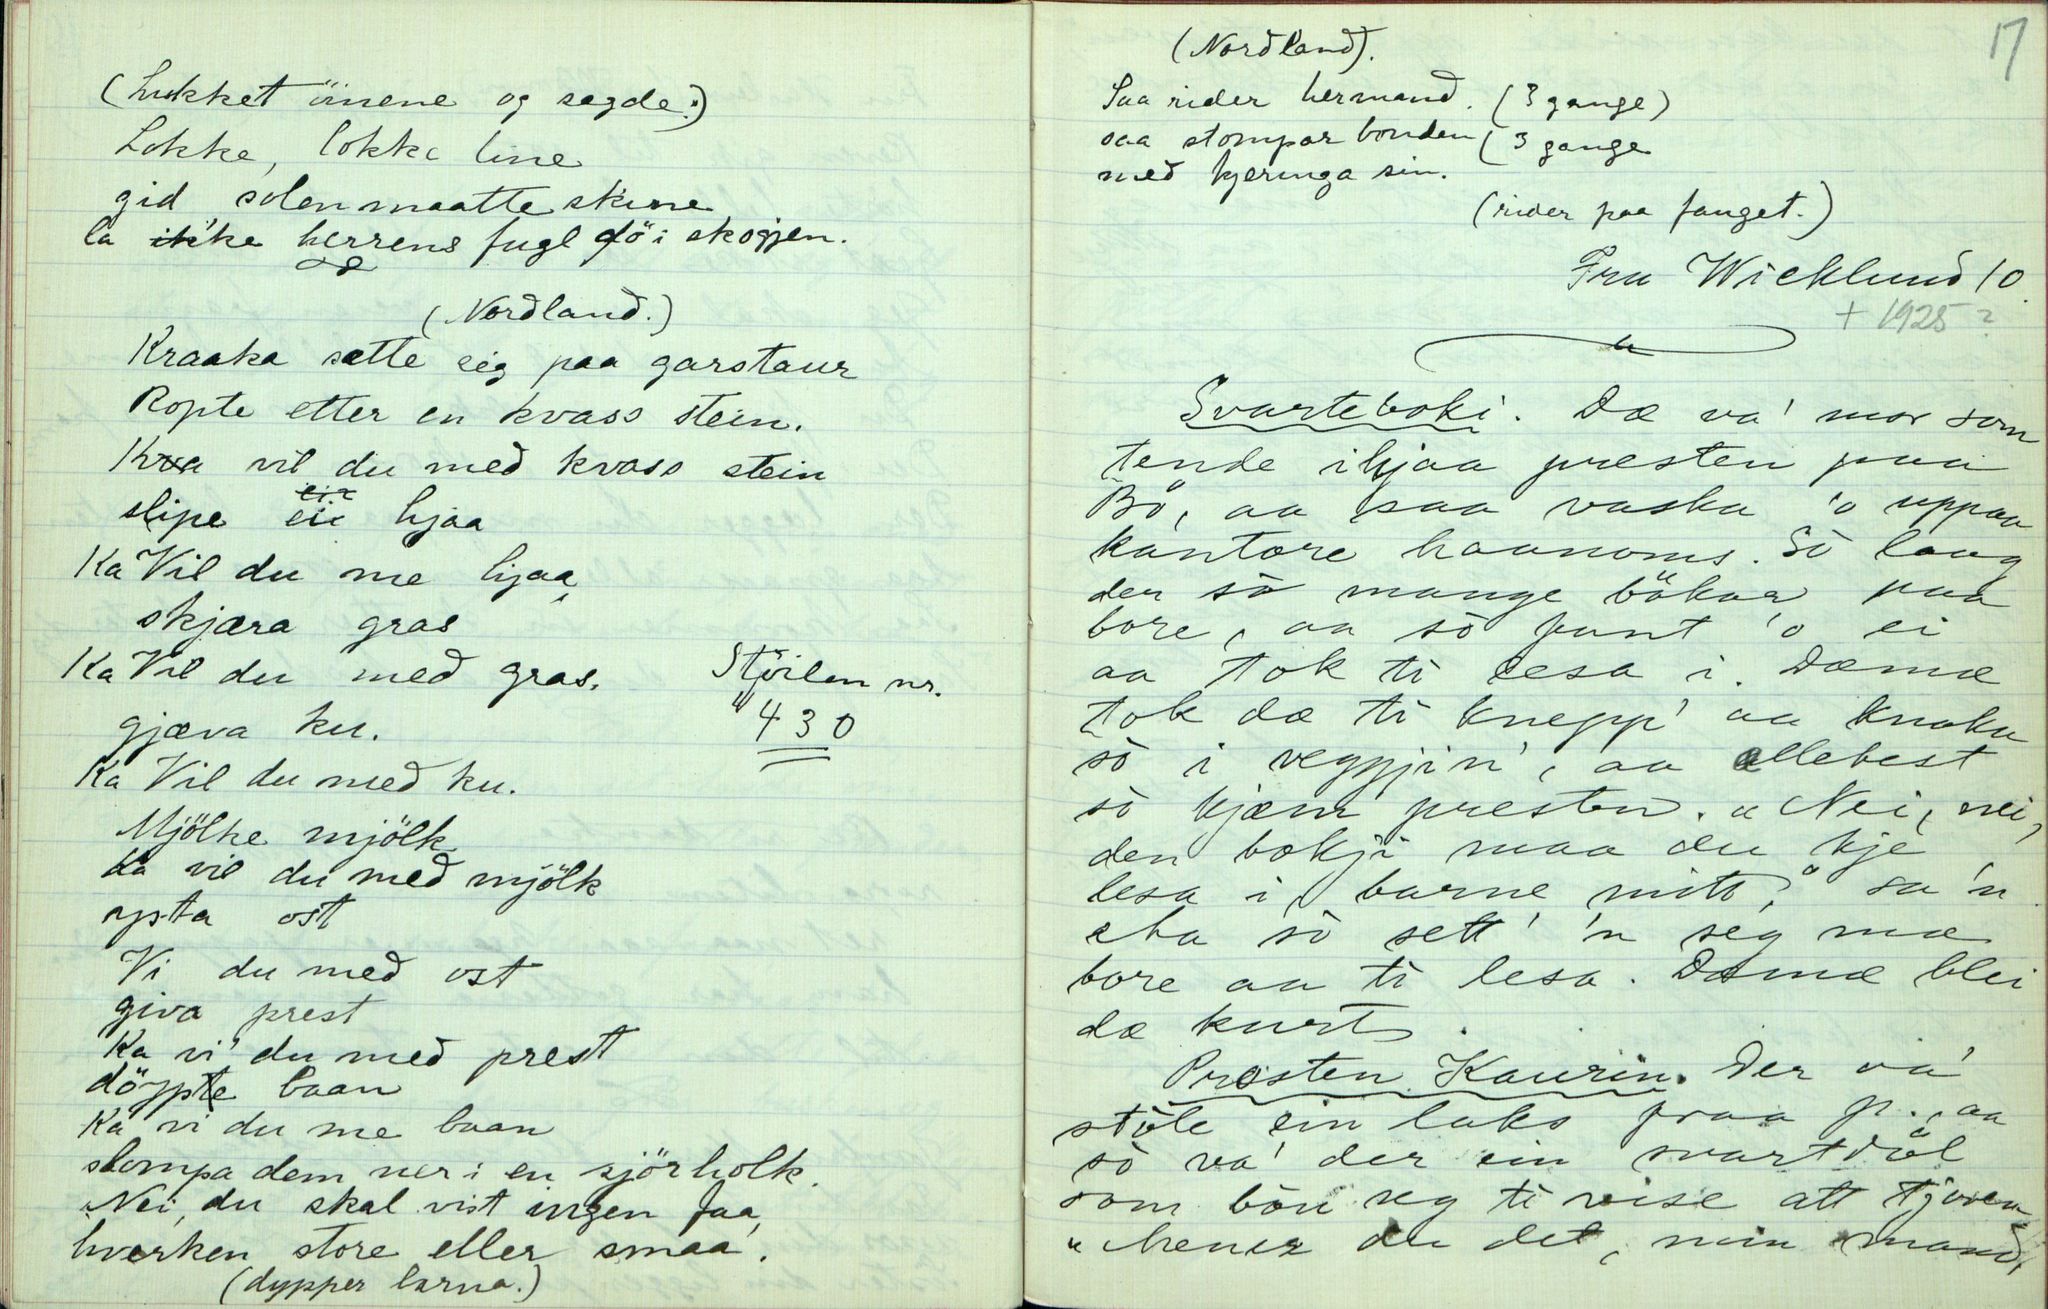 (Lukket öinene og sagde:)
Lokke, lokke line
gid solen maatte skine
la ikke herrens fugl dö i skogjen.
(Nordland.)
Kraaka sette seg paa garstaur
Ropte etter en kvass stein.
Kva vil du med kvass stein
slipe ein hjaa
Ka Vil du me hjaa,
skjæra gras
Ka Vil du med gras.
gjæva ku.
Stöilen nr.
430
Ka Vil du med ku.
Mjölke mjölk
Ka vil du med mjölk
ysta ost
Vi du med ost
giva prest
Ka vi' du med prest
döypte baan
Ka vi du me baan
slompa dem ner i en sjörholk.
Nei, du skal vist ingen faa,
hverken store eller smaa.
(dypper barna.)
17
(Nordland).
Saa rider hermand. (3 gange)
saa stompar bonden (3 gange
med kjeringa sin.
(rider paa fanget.)
Fru Wicklund 10.
+ 1925?
Svarteboki. Dæ va' mor som
tende ihjaa presten paa
Bö, aa saa vaska 'o uppaa
kantore haanoms. Sò laag
der sò mange bökar paa
bore, aa sò fant 'o ei
aa tok ti lesa i. Dæmæ
tok dæ ti knepp' aa knaka
sò i veggjin', aa allebest
sò kjæm presten. "Nei, nei,
den bokji maa du kje
lesa i, barne mitt," sa 'n
sò sett' 'n seg mæ
bore aa ti lesa. Dæmæ blei
dæ kurt.
Presten Kaurin. Der va'
stòle ein laks fraa p., aa
sò va' der ein svartdöl
som böu seg ti vise att tjoven
"Mener du det, min mand,